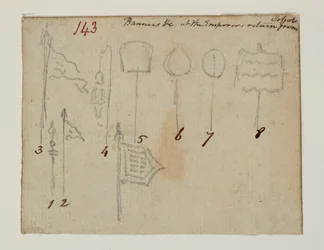 143
Banners &c at the Emperor's return from
3
4
5
6
7
8
1
2